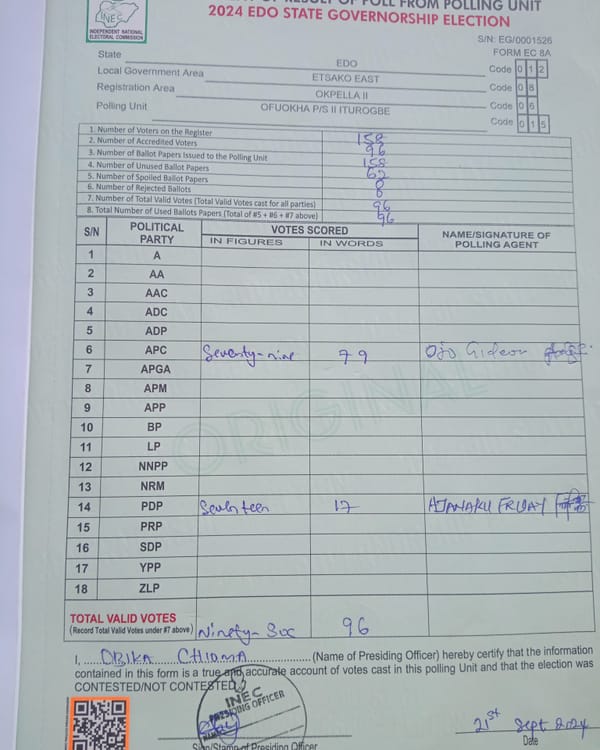 INEC
INDEPENDENT NATIONAL
ELECTORAL COMMISSION
OF RESULT OF POLL FROM POLLING UNIT
2024 EDO STATE GOVERNORSHIP ELECTION
S/N: EG/0001526
FORM EC 8A
State EDO Code 0 1 2
Local Government Area ETSAKO EAST Code 0 8
Registration Area OKPELLA II Code 0 6
Polling Unit OFUOKHA P/S II ITUROGBE Code 0 1 5
1. Number of Voters on the Register 158
2. Number of Accredited Voters 96
3. Number of Ballot Papers Issued to the Polling Unit 158
4. Number of Unused Ballot Papers 62
5. Number of Spoiled Ballot Papers
6. Number of Rejected Ballots
7. Number of Total Valid Votes (Total Valid Votes cast for all parties) 96
8. Total Number of Used Ballots Papers (Total of #5 + #6 + #7 above) 96
S/N POLITICAL PARTY VOTES SCORED NAME/SIGNATURE OF POLLING AGENT
IN FIGURES IN WORDS
1 A
2 AA
3 AAC
4 ADC
5 ADP
6 APC Seventy-nine 79 Ojo Gideon
7 APGA
8 APM
9 APP
10 BP
11 LP
12 NNPP
13 NRM
14 PDP Seventeen 17 AJANAKU FRIDAY
15 PRP
16 SDP
17 YPP
18 ZLP
ORIGINAL
TOTAL VALID VOTES
(Record Total Valid Votes under #7 above) Ninety-Six 96
I, OBIKA CHIOMA (Name of Presiding Officer) hereby certify that the information
contained in this form is a true and accurate account of votes cast in this polling Unit and that the election was
CONTESTED/NOT CONTESTED.
INEC
PRESIDING OFFICER
21st Sept 2024
Sign/Stamp of Presiding Officer Date